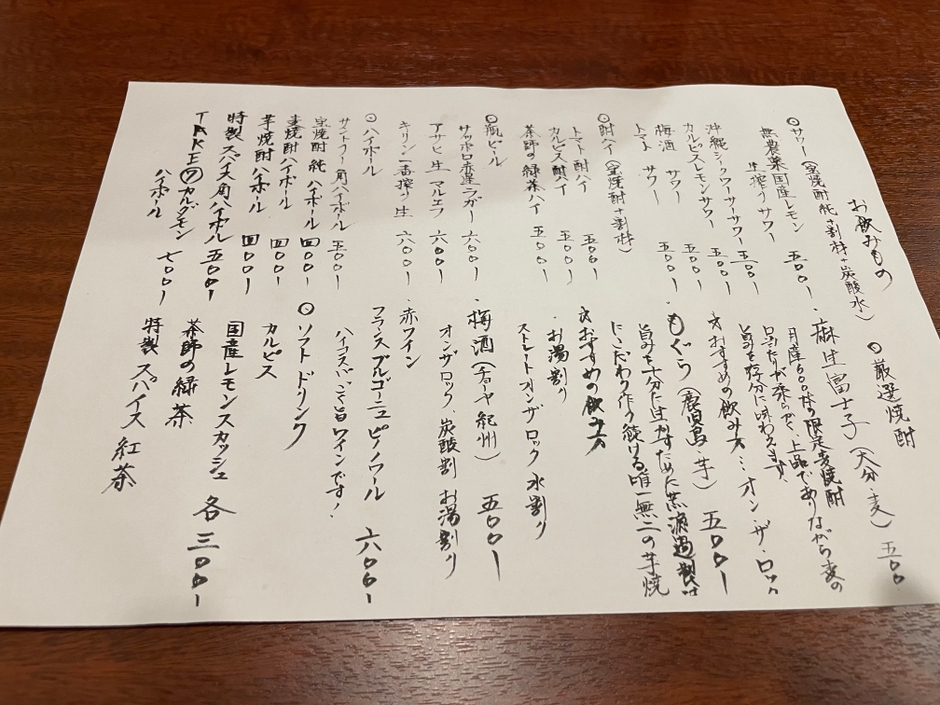 お飲みもの
○サワー(宝焼酎純+割材+炭酸水)
無農薬国産レモン
生搾りサワー 五〇〇ー
沖縄シークワーサーサワー 五〇〇ー
カルピスレモンサワー 五〇〇ー
梅酒サワー 五〇〇ー
トマトサワー 五〇〇ー
○酎ハイ(宝焼酎+割材)
トマト酎ハイ 五〇〇ー
カルピス酎ハイ 五〇〇ー
茶師の緑茶ハイ 五〇〇ー
○瓶ビール
サッポロ赤星ラガー 六〇〇ー
アサヒ生マルエフ 六〇〇ー
キリン一番搾り生 六〇〇ー
○ハイボール
サントリー角ハイボール 五〇〇ー
宝焼酎純ハイボール 四〇〇ー
麦焼酎ハイボール 四〇〇ー
芋焼酎ハイボール 四〇〇ー
特製スパイス角ハイボール 五〇〇ー
TAKEのカルダモン
ハイボール 七〇〇ー
○厳選焼酎
・麻生富士子(大分・麦) 五〇〇
月産600本の限定麦焼酎
口当たりが柔らかく、上品でありながら麦の
旨みを存分に味わえます。
☆おすすめの飲み方…オン・ザ・ロック
・もぐら(鹿児島・芋) 五〇〇ー
旨みを十分に生かすために荒濾過製法
にこだわり作り続ける唯一無二の芋焼
☆おすすめの飲み方
お湯割り
ストレート オンザロック 水割り
・梅酒(チョーヤ紀州) 五〇〇ー
オンザロック、炭酸割 お湯割り
・赤ワイン
フランス ブルゴーニュ ピノノワール 六〇〇ー
ハイコスパっこ旨ワインです!
○ソフトドリンク
カルピス
国産レモンスカッシュ 各三〇〇ー
茶師の緑茶
特製スパイス紅茶